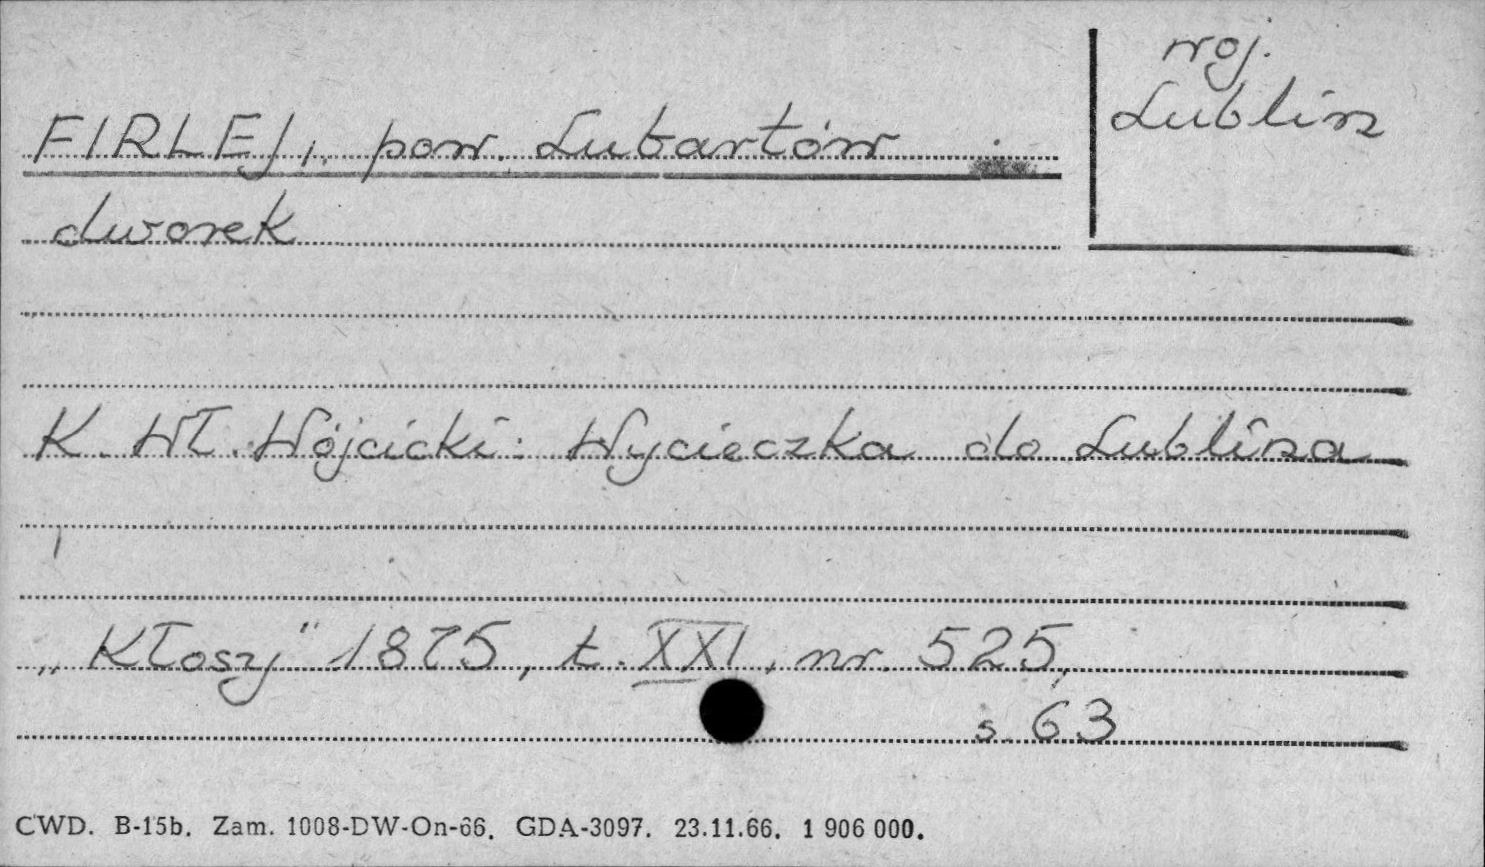 woj.
Lublin
FIRLEJ, pow. Lubartów
dworek
K. Wł. Wójcicki: Wycieczka do Lublina
„Kłosy" 1875, t. XXI, nr. 525,
s. 63
CWD. B-15b. Zam. 1008-DW-On-66. GDA-3097. 23.11.66. 1 906 000.